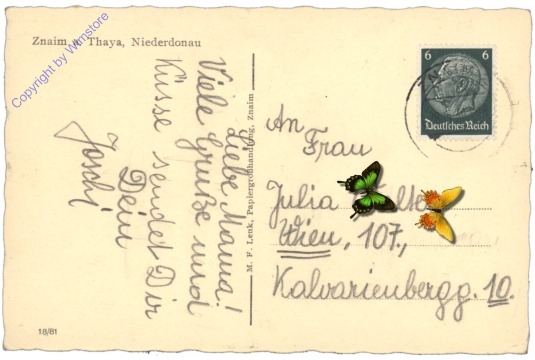 Znaim a. Thaya, Niederdonau
Copyright by Wimstore
Liebe Mama!
Viele Grüße und
Küsse sendet Dir
Dein
Joschi
M. F. Lenk, Papiergroßhandlung, Znaim
18/81
6 6
Deutsches Reich
An
Frau
Julia
Wien, 107.,
Kalvarienbergg. 10.